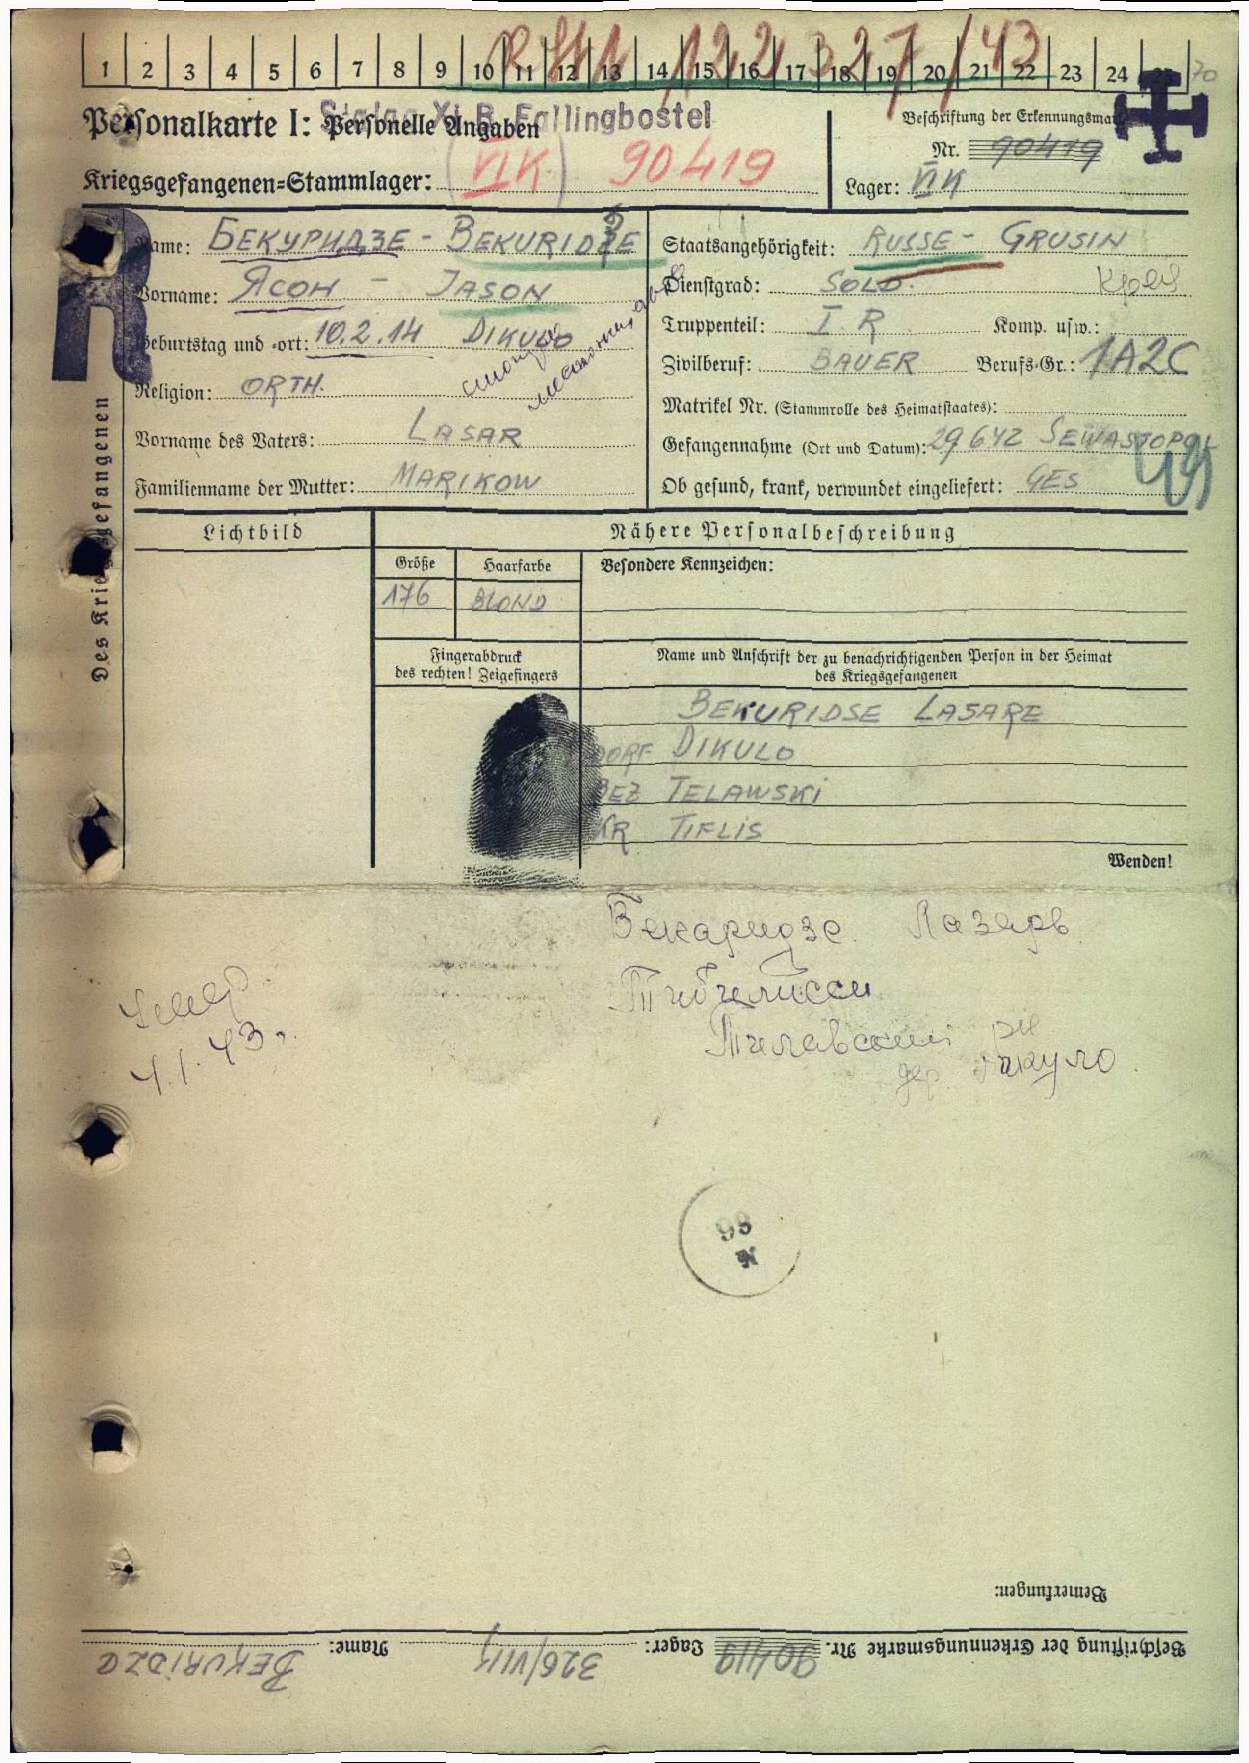 1 2 3 4 5 6 7 8 9 10 11 12 13 14 15 16 17 18 19 20 21 22 23 24 70
Personalkarte I: Personelle Angaben
Stalag XI B Fallingbostel
Beschriftung der Erkennungsmarke
Nr. 90419
Kriegsgefangenen-Stammlager: (VI K) 90419
Lager: VI K
Des Kriegsgefangenen
Name: БЕКУРИДЗЕ - BEKURIDZE
Vorname: ЯСОН - JASON
Geburtstag und -ort: 10.2.14 DIKULO
Religion: ORTH.
Vorname des Vaters: LASAR
Familienname der Mutter: MARIKOW
Staatsangehörigkeit: RUSSE - GRUSIN
Dienstgrad: SOLD.
Truppenteil: I.R Komp. usw.:
Zivilberuf: BAUER Berufs-Gr.: 1A2C
Matrikel Nr. (Stammrolle des Heimatstaates):
Gefangennahme (Ort und Datum): 29 6 42 SEWASTOPOL
Ob gesund, krank, verwundet eingeliefert: GES
Lichtbild
Nähere Personalbeschreibung
Größe Haarfarbe Besondere Kennzeichen:
176 BLOND
Fingerabdruck
des rechten! Zeigefingers
Name und Anschrift der zu benachrichtigenden Person in der Heimat
des Kriegsgefangenen
BEKURIDSE LASARE
DORF DIKULO
BEZ TELAWSKI
KR TIFLIS
Wenden!
Бекаридзе Лазарь
Тибилисси
Телавский рн
дер Дикуло
умер
4.1.43 г.
98
N
Bemerkungen:
Beschriftung der Erkennungsmarke Nr. 90419 Lager: 326/VI K Name: BEKURIDZE